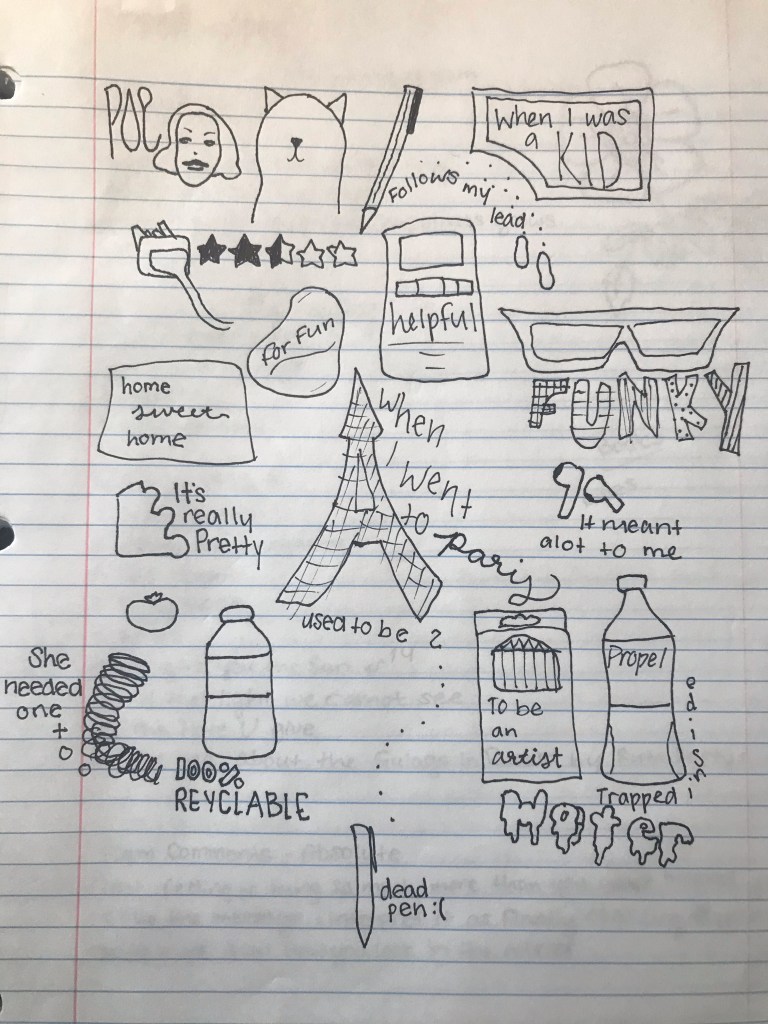 POE
When I was
a KID
Follows my
lead
helpful
For Fun
FUNKY
home
sweet
home
When
I Went
to
Paris
It's
really
Pretty
It meant
alot to me
used to be
She
needed
one
to
Propel
To be
an
artist
inside
Trapped
Water
100%
REYCLABLE
dead
pen :(